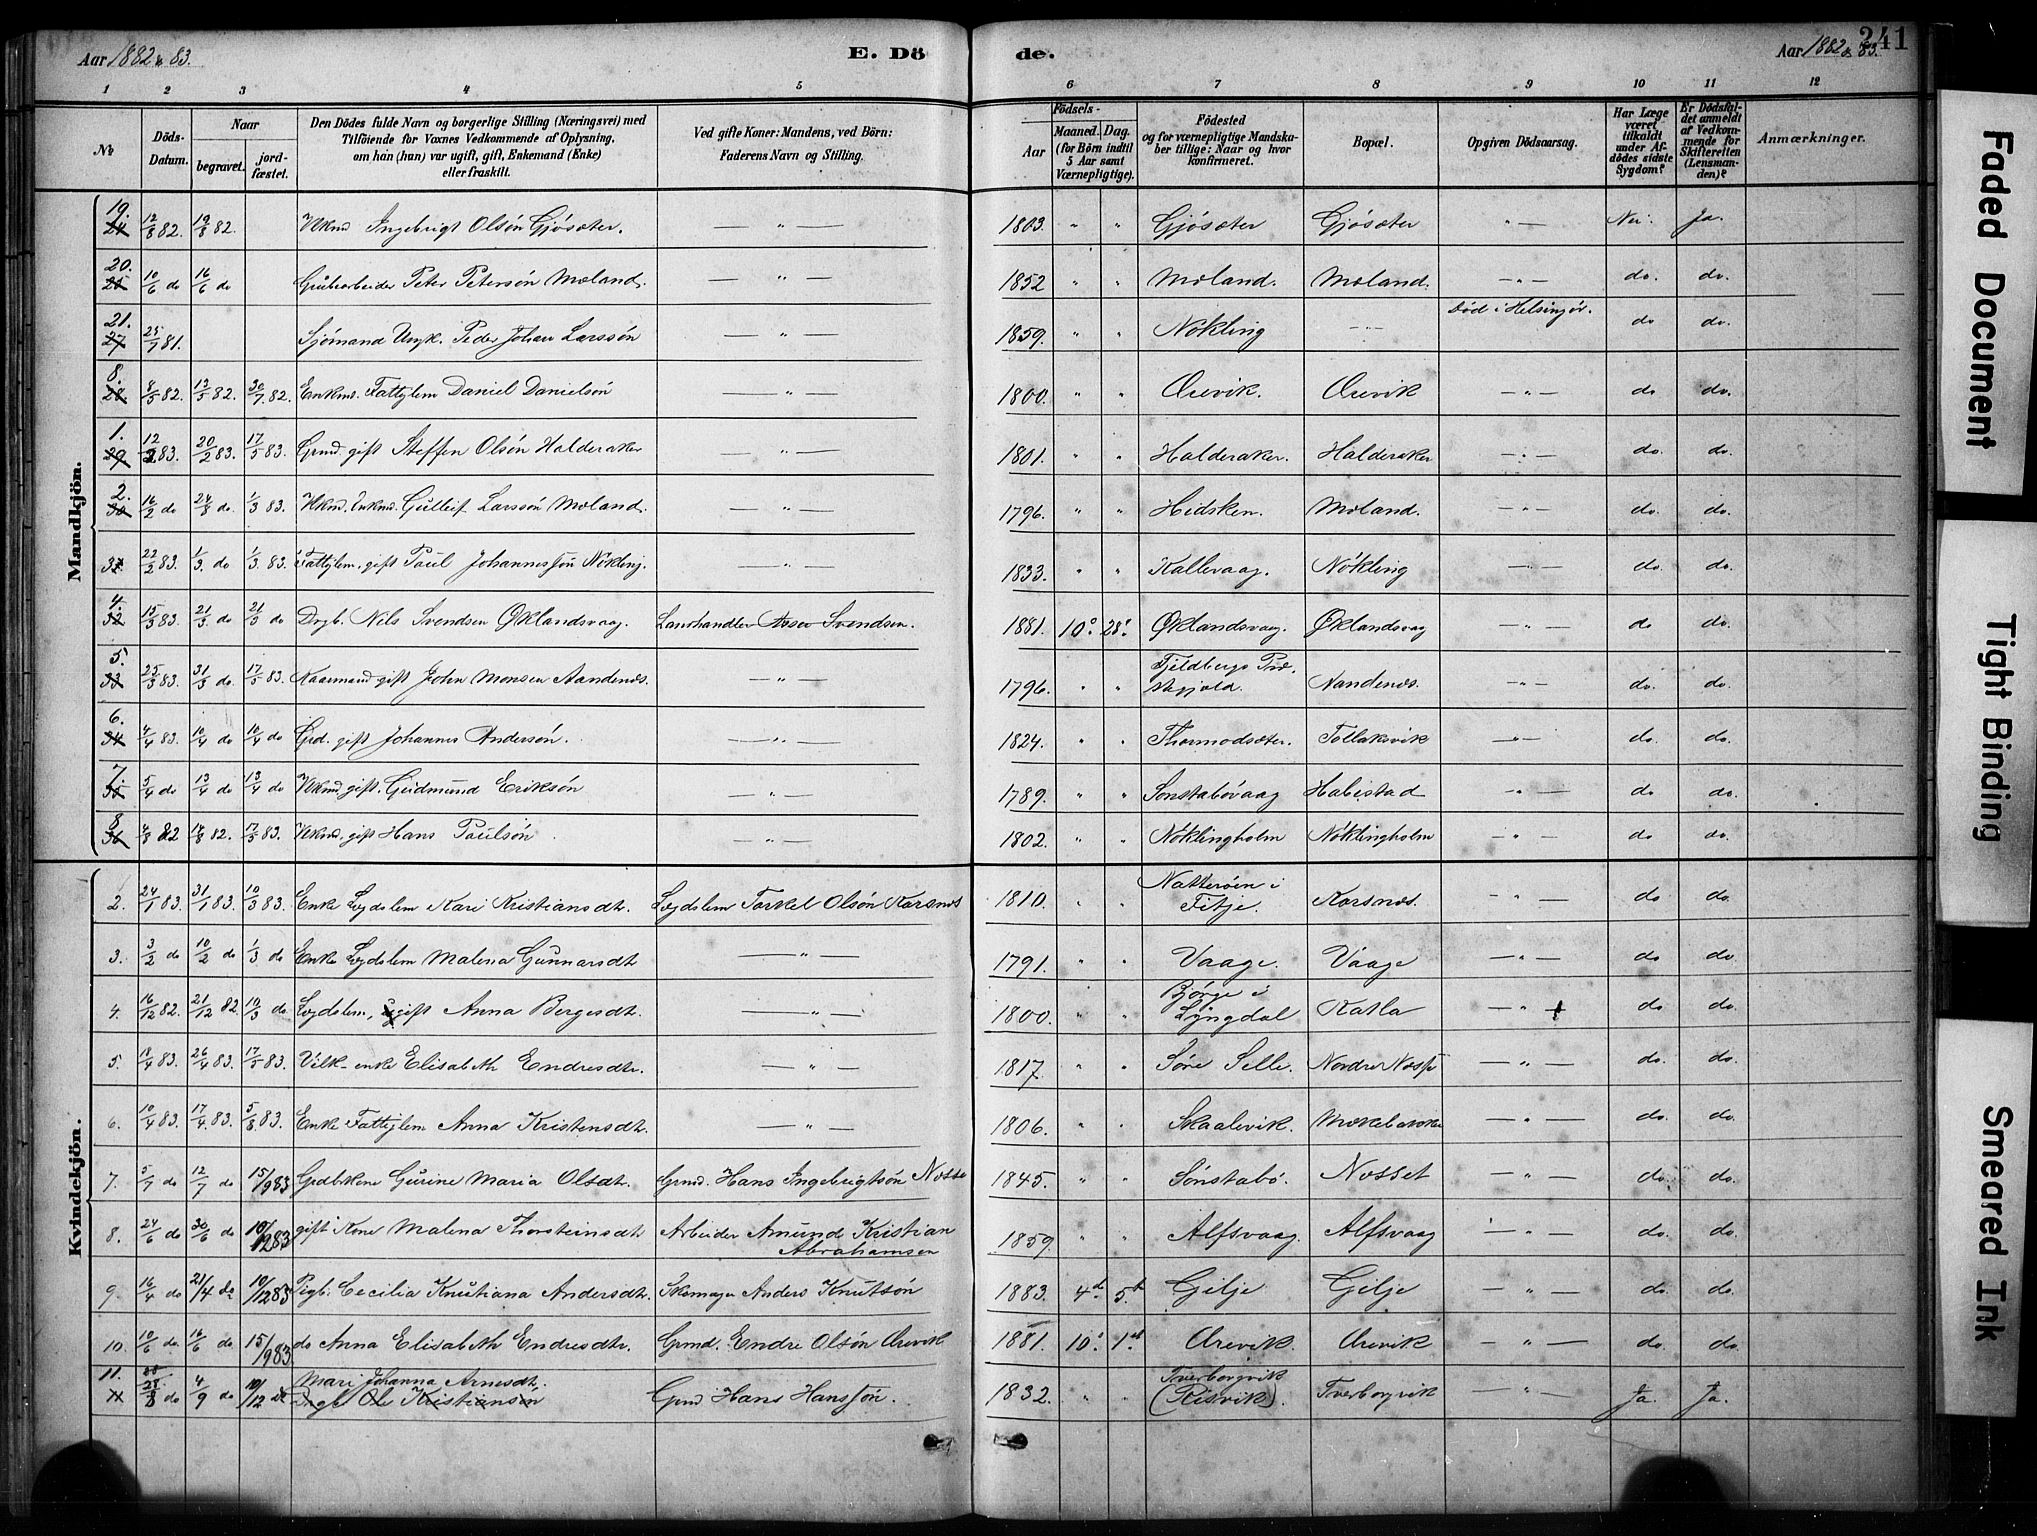 Aar 1882 & 83.
E. Dö
de.
Aar 1882 & 83.
241
1 2 3 4 5 6 7 8 9 10 11 12
№
Döds-Datum.
Naar
begravet.
jordfæstet.
Den Dödes fulde Navn og borgerlige Stilling (Næringsvei) med
Tilföiende for Voxnes Vedkommende af Oplysning,
om han (hun) var ugift, gift, Enkemand (Enke)
eller fraskilt.
Ved gifte Koner: Mandens, ved Börn:
Faderens Navn og Stilling.
Födsels-
Aar
Maaned. Dag.
(for Börn indtil
5 Aar samt
Værnepligtige).
Födested
og for værnepligtige Mandskaber tillige: Naar og hvor
konfirmeret.
Bopæl.
Opgiven Dödsaarsag.
Har Læge
været
tilkaldt
under Afdödes sidste
Sygdom?
Er Dödsfaldet anmeldt
af Vedkommende for
Skifteretten
(Lensmanden)?
Anmærkninger.
Mandkjön.
19. 12/8 82. 19/8 82. Ingebrigt Olsön Gjösæter. — " — 1803. " " Gjösæter Gjösæter — " — Nei. Ja.
20. 10/6 do 16/6 do Peter Petersön Moland. — " — 1852 " " Moland. Moland. — " — do. do.
21. 27 25/7 81. Sjömand Ungk. Peder Johan Larssön — " — 1859. " " Nökling — " — Död i Helsingör. do do.
8. 28. 8/5 82. 13/5 82. 30/7 82. Enkmd. Fattiglem Daniel Danielsön — " — 1800. " " Urevik. Urevik — " — do do.
1. 29 12/2 83. 20/2 83. 17/5 83. Grmd. gift Steffen Olsön Halderaker — " — 1801. " " Halderaker. Halderaker — " — do. do.
2. 30 16/2 do 24/8 do. 1/3 83. Enkmd. Gulleif Larssön Moland. — " — 1796. " " Hidsken. Moland. — " — do. do.
22/2 83. 1/3. do 1/3 83. Fattiglem. gift Paul Johannesson Nökling. — " — 1833. " " Kallevaag. Nökling — " — do. do.
4. 32 15/3 83. 21/3. do 21/3 do Drgb. Nils Svendsen Øklandsvaag. Landhandler Svendsen. 1881. 10. 28. Øklandsvaag. Øklandsvag — " — do do.
5. 33 25/3 83. 31/3 do. 17/5 83. Kaarmand gift John Monsen Aandenes. — " — 1796. " " Fjeldbergs Prestegjeld. Aandenes. — " — do. do.
6. 34 4/4 83. 10/4 do 10/4 do Grd. gift Johannes Andersön. — " — 1824. " " Thormodsæter. Tollaksvik — " — do. do.
7. 35 5/4 do 13/4 do 13/4 do gift. Gudmund Eriksön — " — 1789. " " Sönstabövaag Habestad — " — do do.
8 36 4/8 82 14/8 82. 17/5 83. gift Hans Paulsön — " — 1802. " " Nöklingholm Nöklingholm — " — do do.
Kvindekjön.
2. 24/1 83. 31/1 83. 10/3 83. Enke Lægdslem Kari Kristiansdt. Lægdslem Torkel Olsön Korsnes 1810. " " Natteröen i Fitje. Korsnes. — " — do do.
3. 3/2 do 10/2 do 1/3 do Enke Lægdslem Malena Gunnarsdt. — " — 1791. " " Vaage. Vaage — " — do do.
4. 16/12 82. 21/12 82 10/3 do Lægdslem, gift Anna Bergesdt. — " — 1800. " " Bjørge i Lyngdal Katla — " — do do.
5. 18/4 83. 26/4 83. 17/5 83. enke Elisabeth Endresdt. — " — 1817. " " Söre Selle. Nordre — " — do do.
6. 10/4 83. 17/4 83. 5/8 83. Enke Fattiglem Anna Kristensdt. — " — 1806. " " Skaalevik. — " — do. do.
7. 5/7 do 12/7 do 15/9 83 Gurine Maria Olsdt. Grmd. Hans Ingebrigtsön 1845. " " Sönstabö. Nosset — " — do. do.
8. 24/6 do 30/6 do 10/12 83 gift Kone Malena Thorsteinsdt. Arbeider Amund Kristian Abrahamsen 1859. " " Alfsvaag. Alfsvaag — " — do. do.
9. 16/4 do 21/4 do 10/12 83 Pigb. Cecilia Knutiana Andersdt. Skomager Anders Knutsön 1883. 4de 5te Gilje Gilje — " — do. do.
10. 10/6 do. 16/6 do. 15/9 83 do Anna Elisabeth Endresdt. Grmd. Endre Olsön Urevik 1881. 10. 1ste Urevik. Urevik — " — do. do.
11. 28/8 do 4/9 do 10/12 do Mari Johanna Arnesdt. Drgb. Ole Kristiansön Grmd Hans Hansson. 1832. " " Tverborgvik (Risvik). Tverborgvik — " — Ja. Ja.
Faded Document
Tight Binding
Smeared Ink